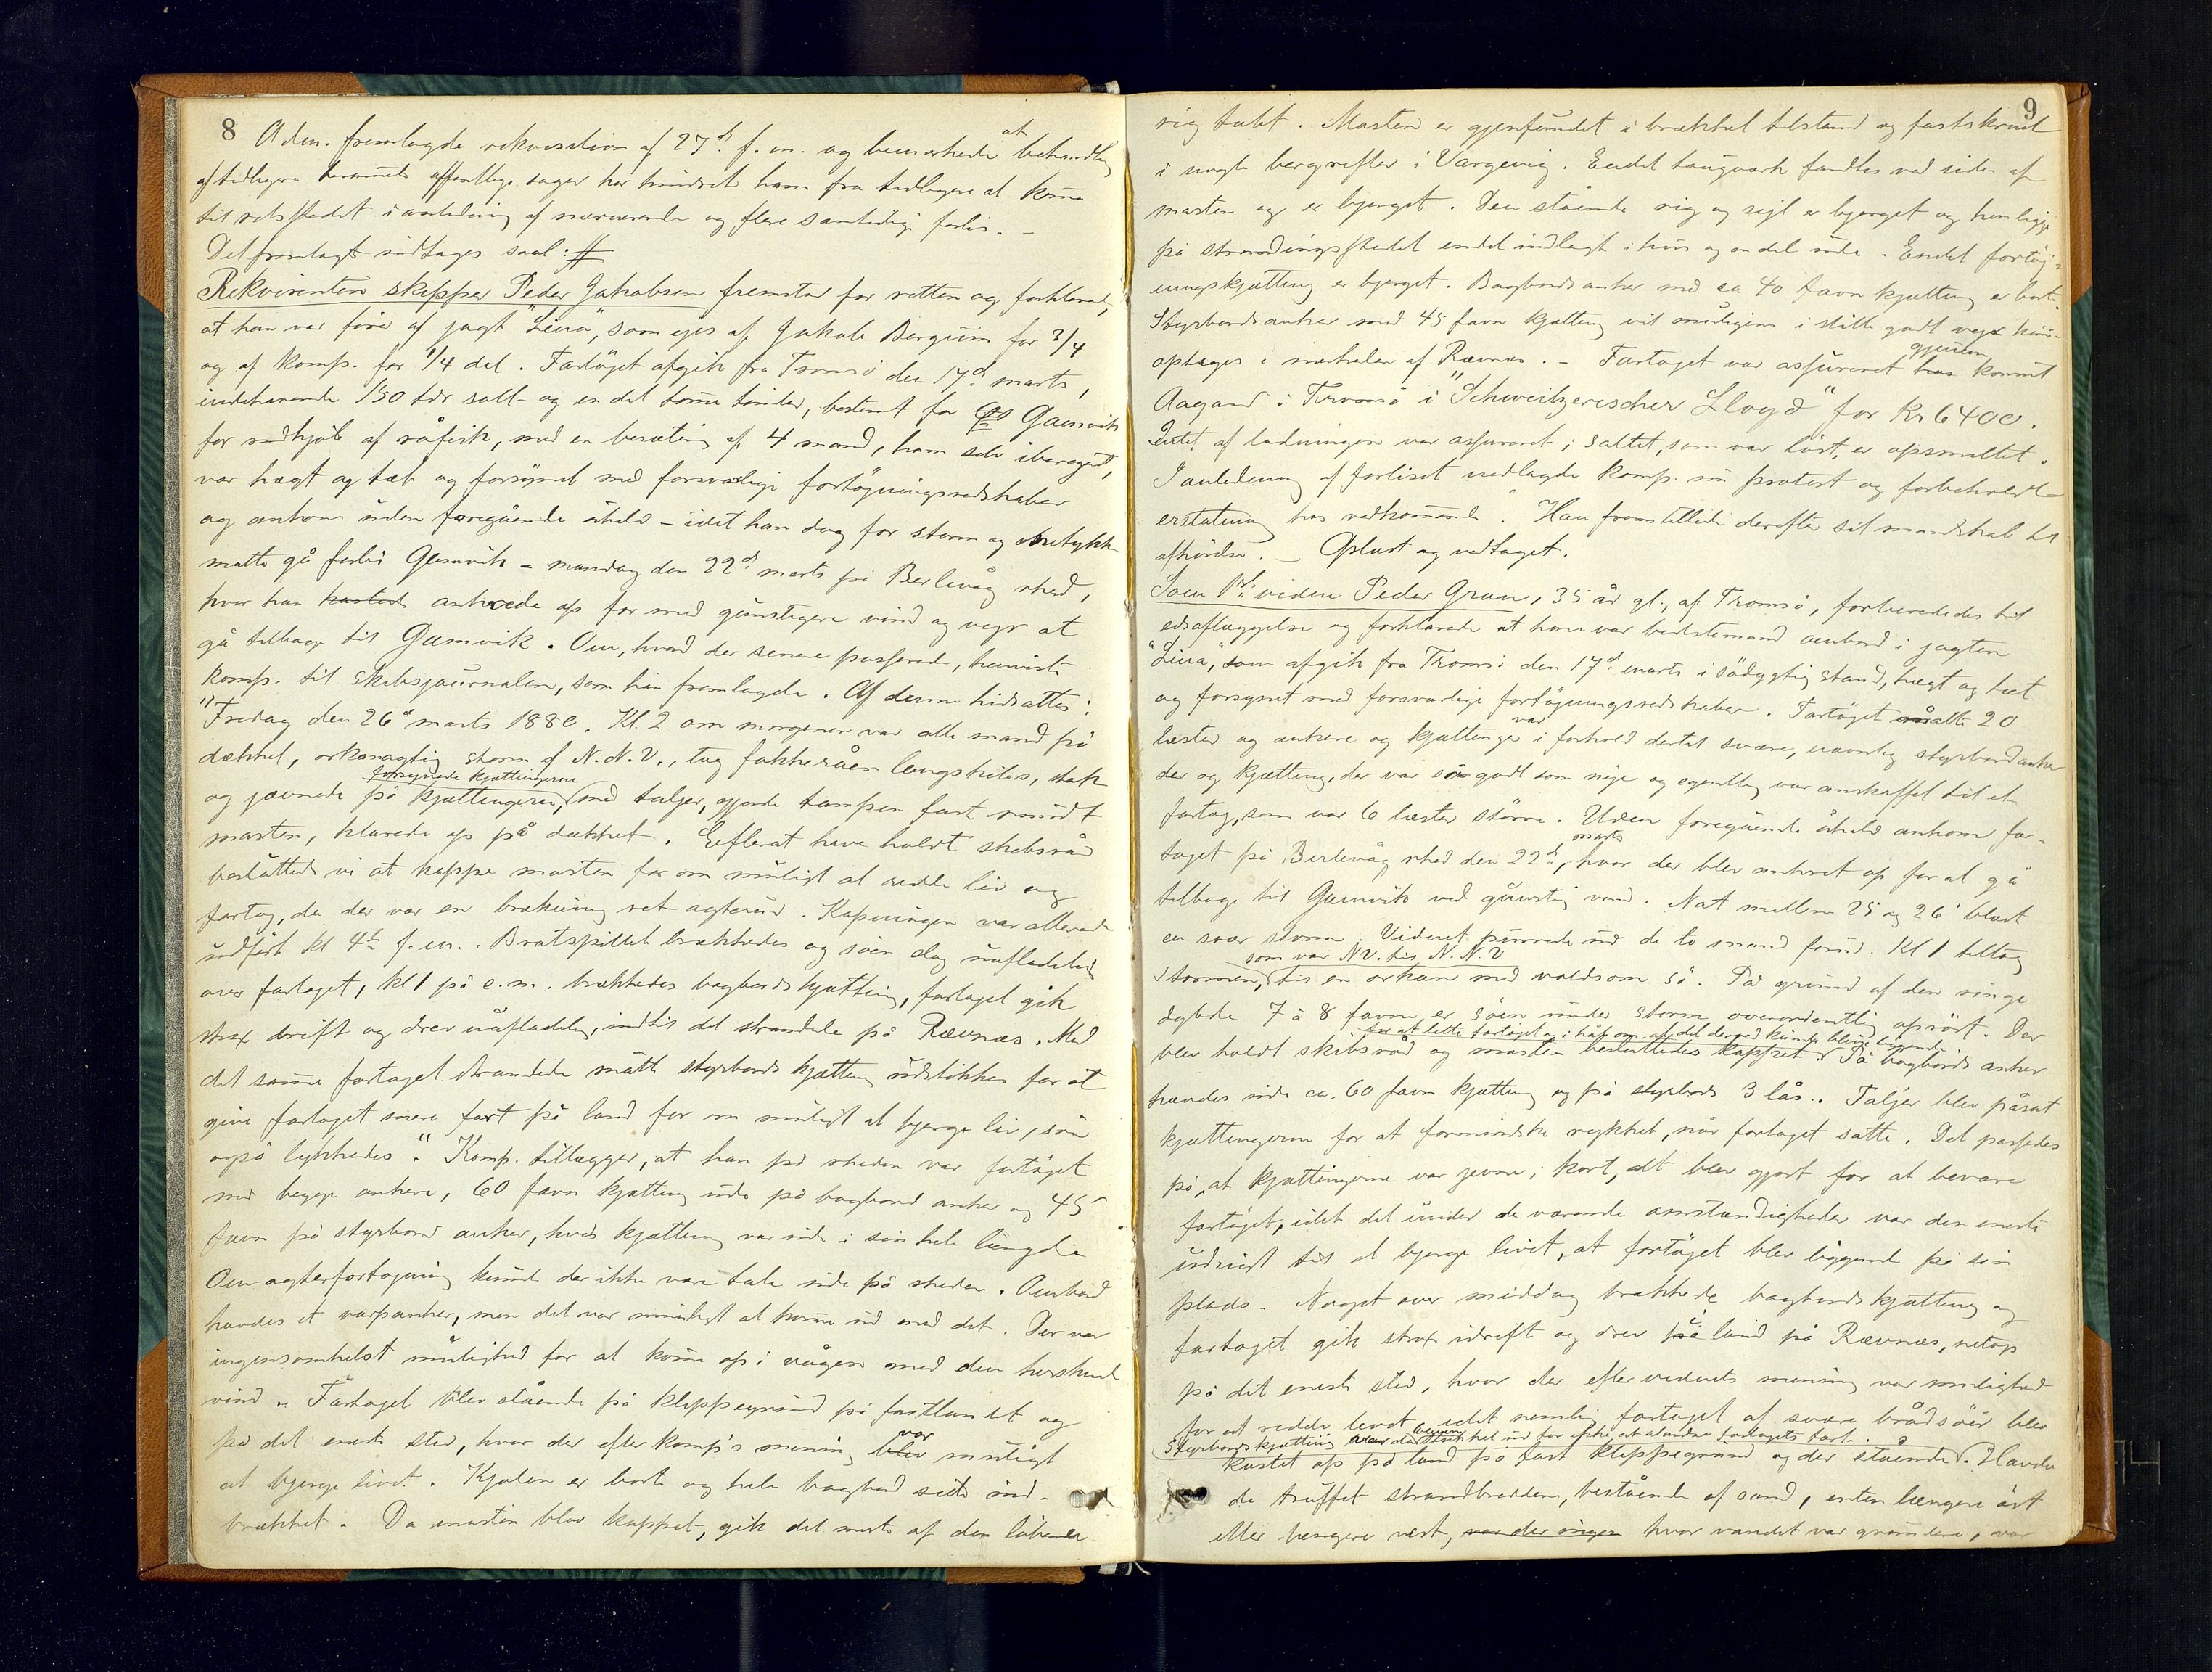 8
Adm. fremlagde rekvisition af 27d. f. m. og bemærkede at behandling
af tidligere berammede offentlige sager har hindret ham fra tidligere at komme
til retsstedet i anledning af nærværende og flere samtidige forlis. –
Det fremlagte indtages saal: #
Rekvirenten skipper Peder Jakobsen fremstod for retten og forklarede,
at han var fører af jagt "Lina", som eies af Jakob Bergum for 3/4
og af komp. for 1/4 del. Fartöjet afgik fra Tromsö den 17d marts,
indehavende 150 tdr salt- og en del tomme tönder, bestemt for Gamvik
for indkjøb af råfisk, med en besætning af 4 mand, ham selv iberegnet,
var hægt og tæt og forsynet med forsvarlige fortöjningsredskaber
og ankom uden foregående uheld – idet han dog for storm og snetykke
måtte gå forbi Gamvik – mandag den 22d marts på Berlevåg rhed,
hvor han kastede ankrede op for med gunstigere vind og vejr at
gå tilbage til Gamvik. Om, hvad der senere passerede, henviste
komp. til skibsjournalen, som han fremlagde. Af denne hidsattes:
"Fredag den 26d marts 1880. Kl. 2 om morgenen var alle mand på
dækket, orkanagtig storm af N.N.V., tog fokkeråen langskibs, stak
og jævnede på kjættingerne, forsynede kjættingerne med taljer, gjorde tampen fast rundt
masten, klarede op på dækket. Efterat have holdt skibsråd
besluttede vi at kappe masten for om muligt at redde liv og
fartøj, da der var en brækning ret agterud. Kapningen var allerede
udfört kl 4½ f.m. Bratspillet brækkedes og söen slog uafladelig
over fartøjet, kl 1 på e.m. brækkedes bagbords kjætting, fartøjet gik
strax i drift og drev uafladelig, indtil det strandede på Rævnæs. Med
det samme fartøjet strandede måtte styrbords kjætting udstikkes for at
give fartøjet mere fart på land for om muligt at bjerge liv, som
også lykkedes." Komp. tillægger, at han på rheden var fortöjet
med begge ankere, 60 favn kjætting ude på bagbord anker og 45
favn på styrbord anker, hvis kjætting var ude i sin hele længde
Om agterfortøjning kunde der ikke være tale ude på rheden. Ombord
havdes et varpanker, men det var umuligt at komme ud med det. Der var
ingensomhelst mulighed for at komme op i vågen med den herskende
vind. Fartøjet blev stående på klippegrund på fastlandet og
på det eneste sted, hvor der efter komp's mening blev var muligt
at bjerge livet. Kjölen er borte og hele bagbord side ind-
brækket. Da masten blev kappet, gik det meste af den löbende
9
rig tabt. Masten er gjenfundet i brækket tilstand og fastskruet
i nogle bergrifter i Vargevig. Endel taugværk fandtes ved siden af
masten og er bjerget. Den stående rig og sejl er bjerget og henligger
på strandingsstedet endel indlagt i hus og en del ude. Endel fortöj-
ningskjætting er bjerget. Bagbords anker med ca 40 favn kjætting er borte.
Styrbords anker med 45 favn kjætting vil muligens i stille godt vejr kunne
optages i nærheden af Rævnæs. – Fartøjet var assureret hos gjennem konsul
Aagaard i Tromsö i "Schweitzerischer Lloyd" for Kr 6400.
Intet af ladningen var assureret; saltet, som var löst, er opsmeltet.
I anledning af forliset nedlagde komp. sin protest og forbeholdt
erstatning hos vedkommende. Han fremstillede derefter sit mandskab til
afhørelse. – Oplæst og vedtaget.
Som 1ste vidne Peder Gran, 35 år gl., af Tromsö, forberededes til
edsaflæggelse og forklarede at han var bedstemand ombord i jagten
"Lina", som afgik fra Tromsö den 17d marts i södygtig stand, hægt og tæt
og forsynet med forsvarlige fortöjningsredskaber. Fartöjet måtte 20
læster og ankere og kjættinger var i forhold dertil svære, navnlig styrbord anker
der og kjætting, der var så godt som nye og egentlig var anskaffet til et
fartøj, som var 6 læster större. Uden foregående uheld ankom far-
tøjet på Berlevåg rhed den 22d marts, hvor der blev ankret op for at gå
tilbage til Gamvik ved gunstig vind. Nat mellem 25 og 26' blæst
en svær storm. Vidnet purrede ud de to mand forud. Kl 1 tiltog
stormen, som var NV. til N.N.V til en orkan med voldsom sö. På grund af den ringe
dybde 7 à 8 favne er söen under storm overordentlig oprört. Der
blev holdt skibsråd og masten besluttedes kappet for at lette fartøjet og i håb om at det derved kunde blive liggende. På bagbords anker
havdes ude ca. 60 favn kjætting og på styrbords 3 lås. Taljer blev påsat
kjættingerne for at formindske rykket, når fartøjet satte. Det passedes
på, at kjættingerne var jevne; kort, alt blev gjort for at bevare
fartöjet, idet det under de værende omstændigheder var den eneste
udsigt til at bjerge livet, at fartöjet blev liggende på sin
plads. Noget over middag brækkede bagbords kjætting og
fartøjet gik strax i drift og drev på land på Rævnæs, netop
på det eneste sted, hvor der efter vidnets mening var mulighed
for at redde livet, idet nemlig fartøjet af svære brådsöer blev
Styrbords kjætting blev stukket ud for ikke at standse fartøjets fart.
kastet op på land på fast klippegrund og der stående. Havde
de truffet strandbredden, bestående af sand, enten længere öst
eller længere vest, var der ingen hvor vandet var grundere, var